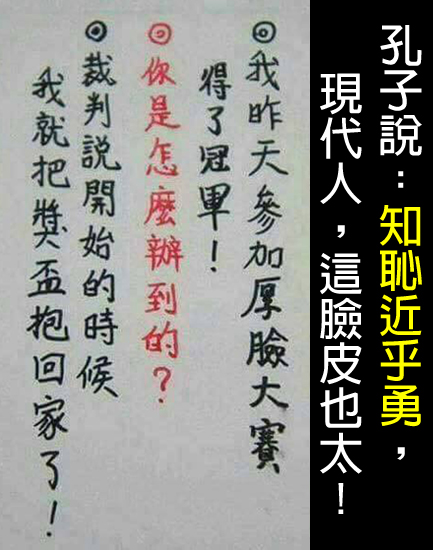 孔子說：知恥近乎勇，
現代人，這臉皮也太！
◎我昨天參加厚臉大賽
得了冠軍！
◎你是怎麼辦到的？
◎裁判說開始的時候
我就把獎盃抱回家了！